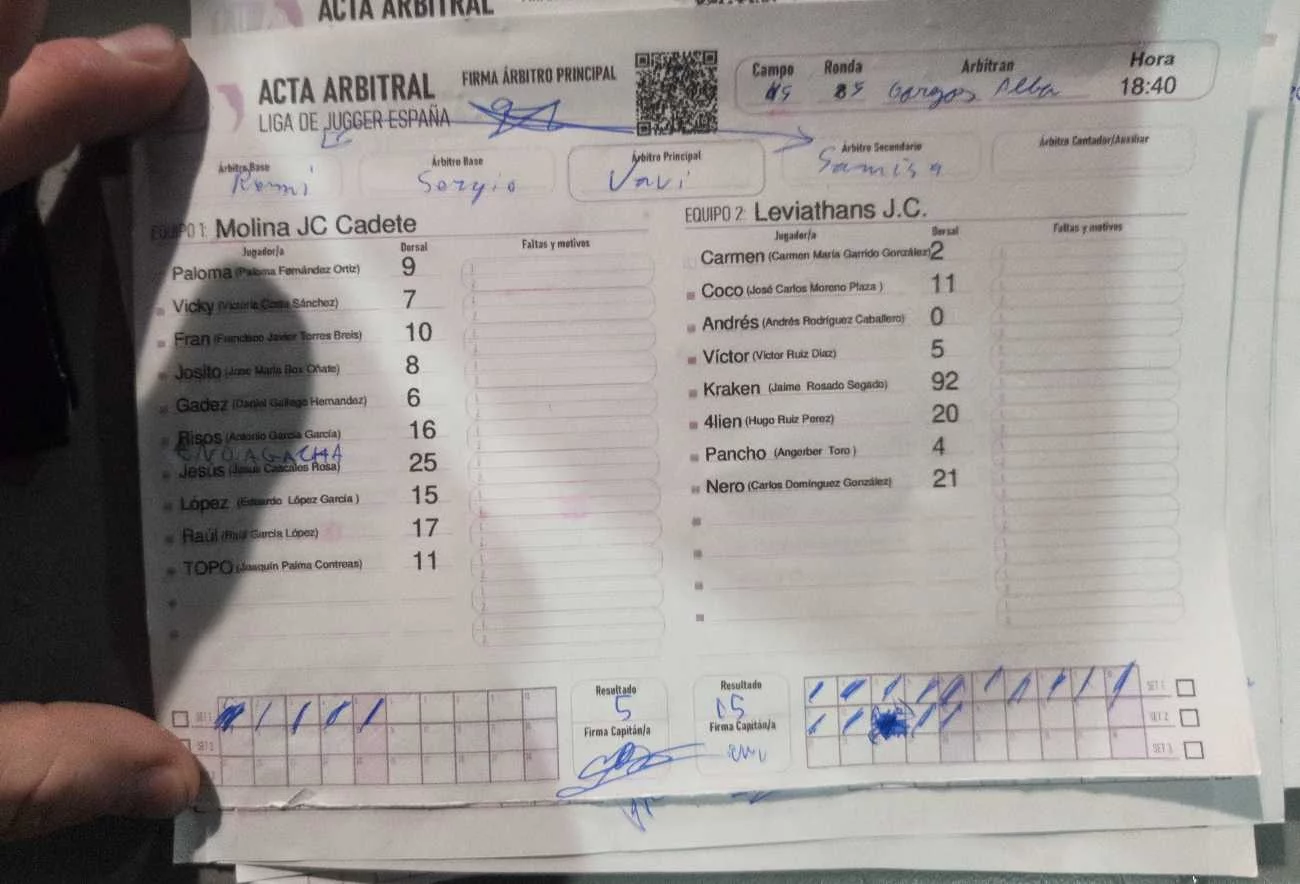 ACTA ARBITRAL
ACTA ARBITRAL
LIGA DE JUGGER ESPAÑA
FIRMA ÁRBITRO PRINCIPAL
Campo Ronda Arbitran Hora
18:40
Árbitro Base Árbitro Base Árbitro Principal Árbitro Secundario Árbitro Contador/Auxiliar
Remi Sergio Javi
EQUIPO 1: Molina JC Cadete
Jugador/a Dorsal Faltas y motivos
Paloma (Paloma Fernández Ortiz) 9
Vicky (Victoria Costa Sánchez) 7
Fran (Francisco Javier Torres Breis) 10
Josito (Jose María Box Oñate) 8
Gadez (Daniel Gallego Hernandez) 6
Risos (Antonio García García) 16
Jesús (Jesús Cascales Rosa) 25
López (Eduardo López García ) 15
Raúl (Raúl García López) 17
TOPO (Joaquín Palma Contreas) 11
EQUIPO 2: Leviathans J.C.
Jugador/a Dorsal Faltas y motivos
Carmen (Carmen María Garrido González) 2
Coco (José Carlos Moreno Plaza ) 11
Andrés (Andrés Rodríguez Caballero) 0
Víctor (Victor Ruiz Diaz) 5
Kraken (Jaime Rosado Segado) 92
4lien (Hugo Ruiz Perez) 20
Pancho (Angerber Toro ) 4
Nero (Carlos Domínguez González) 21
SET 1
SET 2
Resultado
5
Firma Capitán/a
Resultado
15
Firma Capitán/a
SET 1
SET 2
SET 3